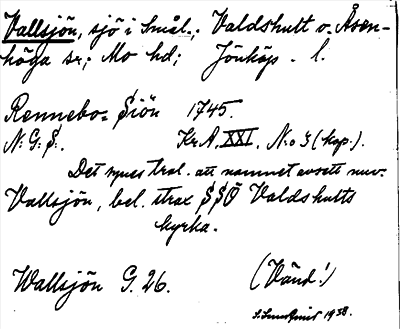 Vallsjön, sjö i Smål.; Valdshult o. Åsen-
höga sr; Mo hd; Jönköp. l.
Rennebo- Siön 1745.
N: G: S:. Kr.A. XXI. N:o 3 (kop.).
Det synes trol. att namnet avsett nuv.
Vallsjön, bel. strax SSÖ Valdshults
kyrka.
Wallsjön G. 26. (Vänd!)
1938.